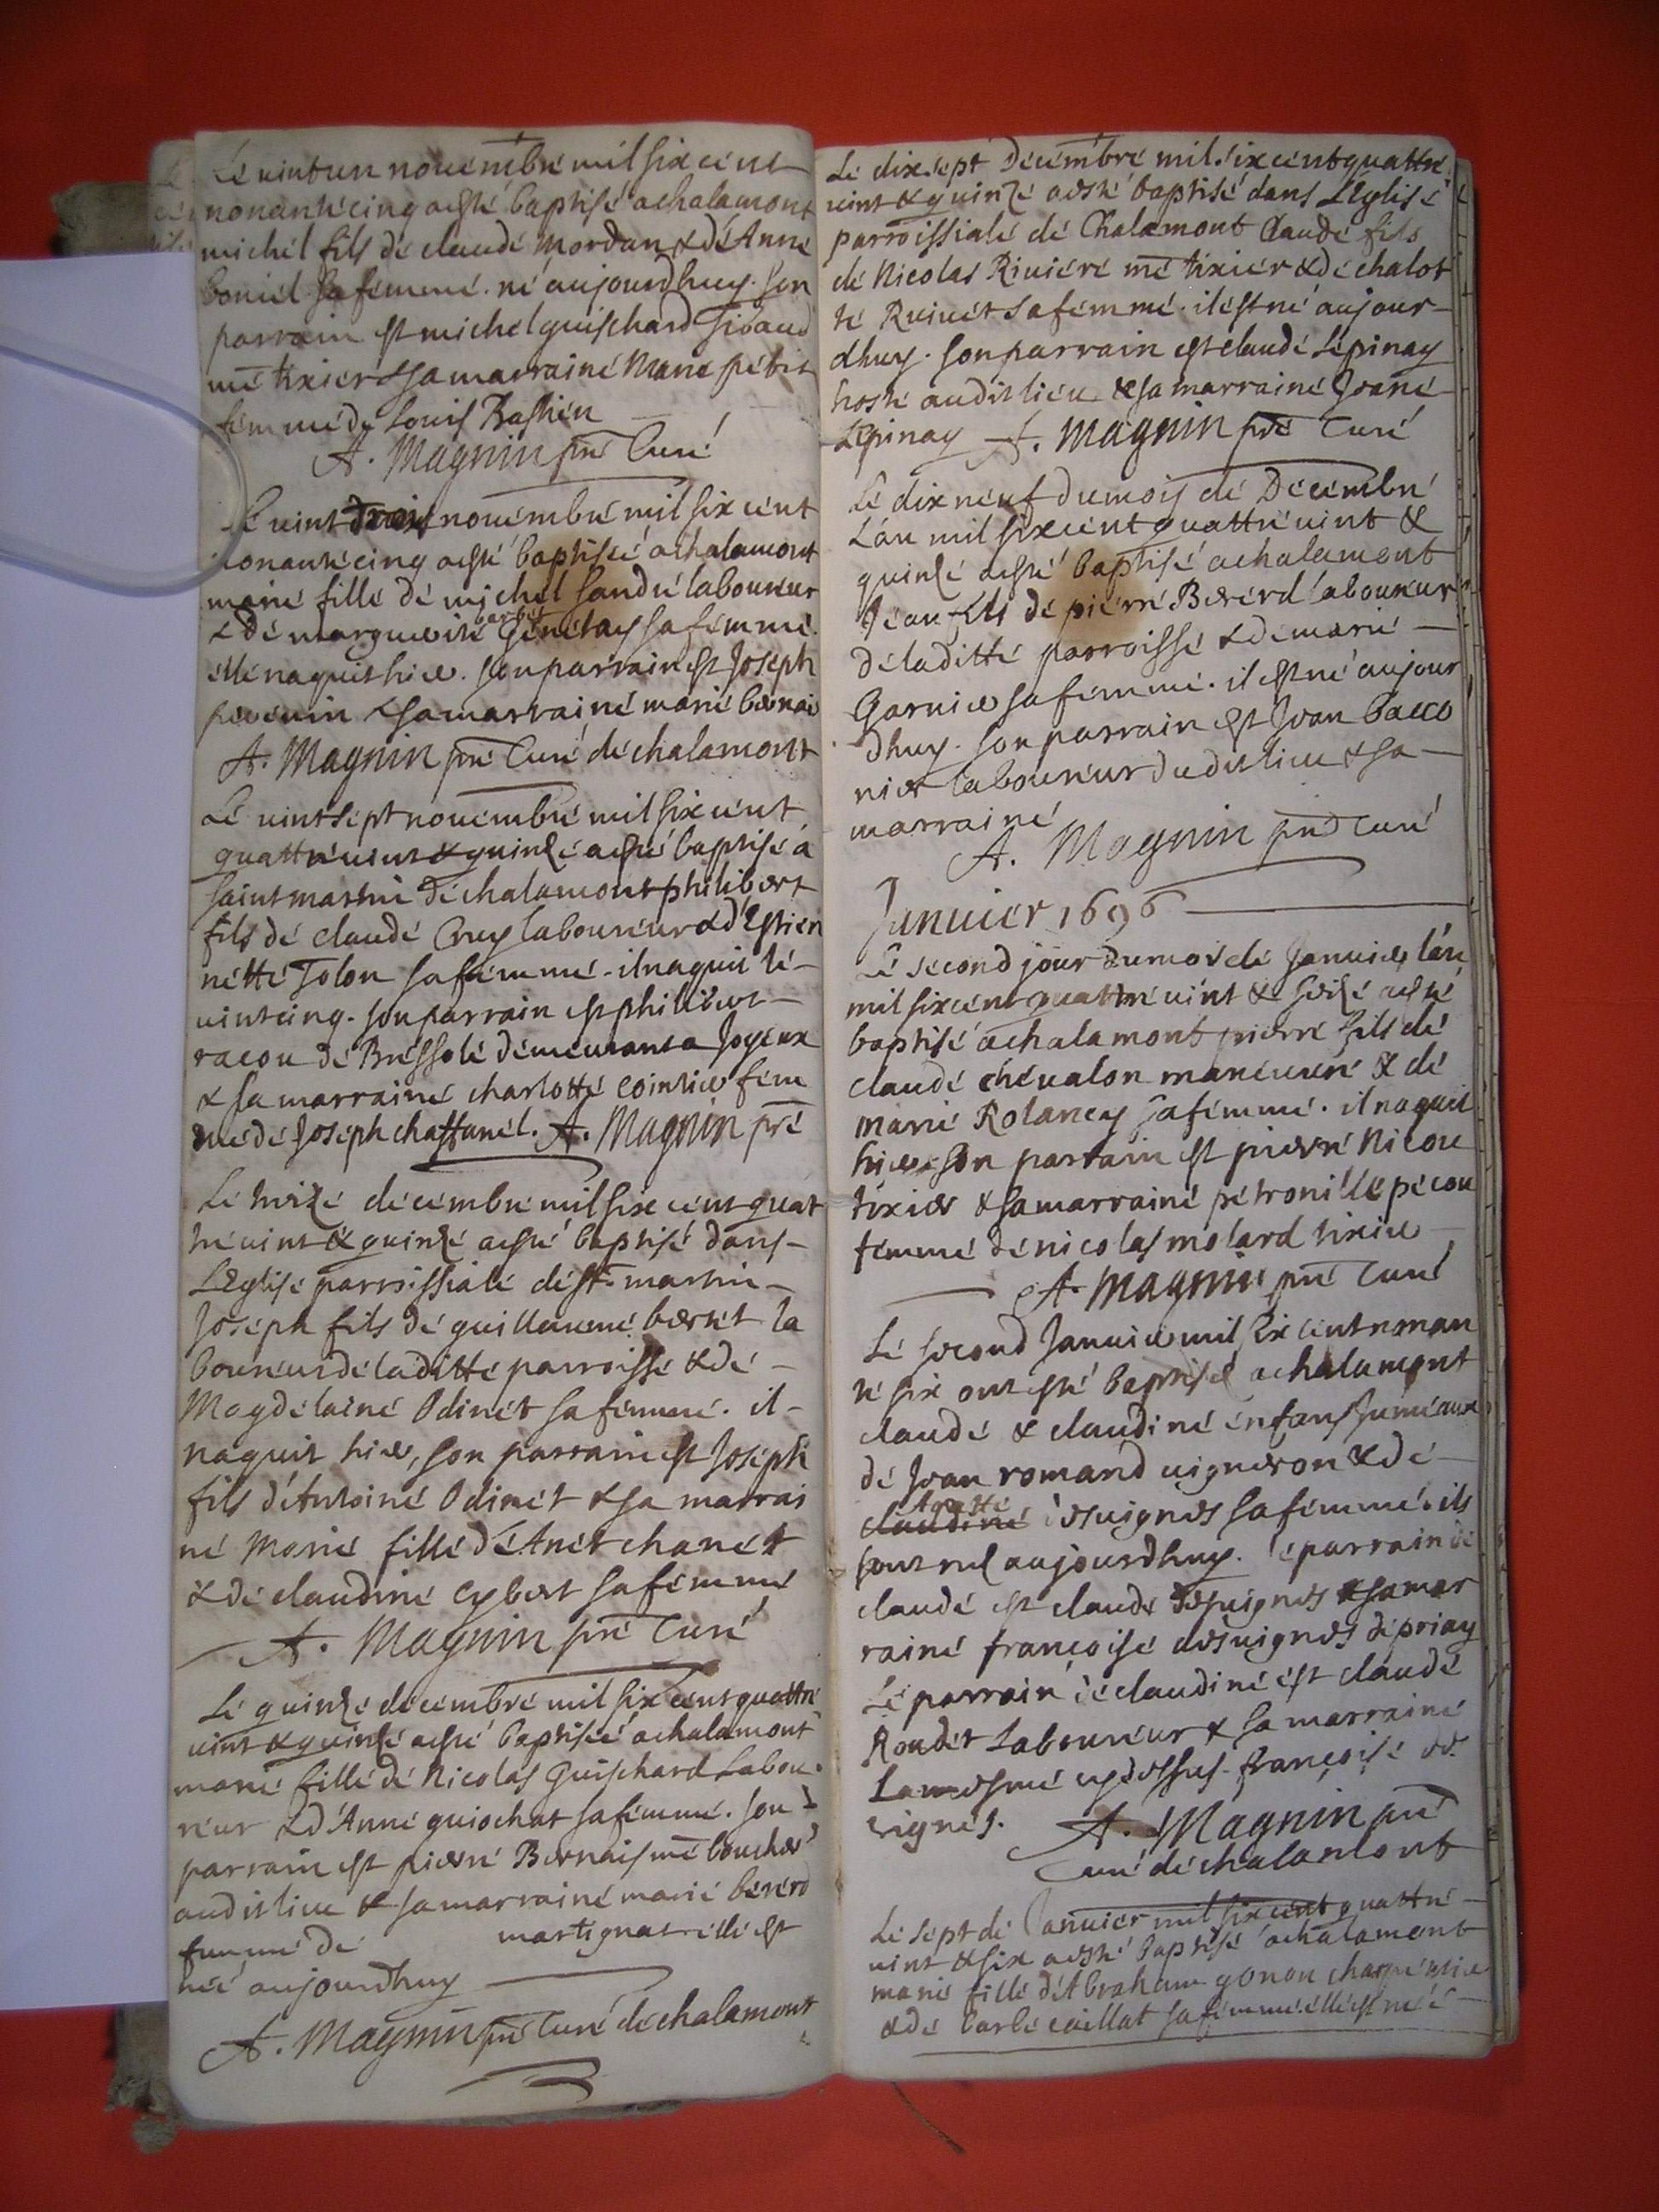 Lé vint un nouembré mil six cent
nonanté cinq a esté baptisé a chalamont
michel fils dé claudé Mordan & dé Anné
boniel sa fémmé. né aujourdhuy. son
parrain est michel guischard
mē tixier & sa marrainé Marié pétit
fémmé de Louis Bastien
A. Magnin pré Curé
Lé vint trois nouembré mil six cent
nonanté cinq a esté baptiséé a chalamont
marié fillé dé michel landré laboureur
& dé margueritè sa fémmé.
éllé naquit hier. son parrain est Joseph
& sa marrainé marié bernais
A. Magnin pré Curé dé chalamont
Lé vint sépt nouembré mil six cent
quattré vint & quinzé a esté baptisé á
saint martin dé chalamont philibert
fils dé claudé Cruy laboureur & d'Estien
nétté Tolon sa fémmé. il naquit lé
vint cinq. son parrain est philibert
racou dé Bréssolé démeurant a Joyeux
& sa marrainé charlotté cointier fém
mé dé Joseph chaffanél. A. Magnin pré
Lé treizé décembré mil six cent quat
tré vint & quinzé a esté baptisé dans
L'Eglisé parroissialé dé st. martin
Joséph fils dé guillaumé bernét la
boureur dé laditté parroissé & dé
Magdélainé Odinét sa fémmé. il
naquit hier, son parrain est Joséph
fils d'Antoiné Odinét & sa marrai
né Marié fillé d'Anét chanét
& dé claudiné cybert sa fémmé
A. Magnin pré Curé
Lé quinzé décembré mil six cent quattré
vint & quinzé a esté baptiséé a chalamont
marié fillé dé Nicolas Guischard Labou
reur & d'Anné guiochat sa fémmé. son
parrain est pierré Bernais mē boucher
audit lieu & sa marrainé marié bérérd
femmé dé martignat éllé est
néé aujourdhuy
A. Magnin pré Curé dé chalamont
Lé dix sept Décembré mil six cent quattré
vint & quinzé a esté baptisé dans L'Eglisé
parroissialé dé Chalamont Claudé fils
dé Nicolas Riuiéré mē tixiér & dé chalot
té Riuiét sa fémmé. il ést né aujour
dhuy. son parrain est claudé Lépinay
hosté audit lieu & sa marrainé Joané
Lépinay A. Magnin pré Curé
Lé dix neuf du mois dé Décembré
L'an mil six cent quattré vint &
quinzé a esté baptisé a chalamont
Jéan fils dé piérré Bérérd laboureur
dé laditté parroissé & dé marié
Garnier sa fémmé. il est né aujour
dhuy. son parrain est Jean bacco
niér laboureur dudit lieu & sa
marrainé
A. Magnin pré Curé
Januier 1696
Lé second jour du mois dé Januier l'an
mil six cent quattré vint & seizé a esté
baptisé a chalamont pierré fils dé
claudé chéualon maneuuré & dé
marié Rolancy sa fémmé. il naquit
hier. son parrain est pierré Nicou
tixier & sa marrainé pétronillé pécou
fémmé dé nicolas molard tixier
A. Magnin pré Curé
Lé sécond Januier mil six cent nonan
té six ont esté baptisés a chalamont
claudé & claudiné énfans Juméaux
dé Jean romand uigneron & dé
Agatté
claudiné désuignes sa fémmé. ils
sont nés aujourdhuy. lé parrain dé
claudé est claude désuignes & sa mar
rainé françoisé désuignes dé priay
Lé parrain dé claudiné ést claudé
Roudét Laboureur & sa marrainé
La mesmé cy dessus françoisé des
vignés. A. Magnin pré
Curé dé chalamont
Lé sépt dé Januier mil six cent quattré
vint & six a esté baptisé a chalamont
marié fillé d'Abraham gonon charpéntier
& dé barbé caillat sa fémmé éllé ést néé